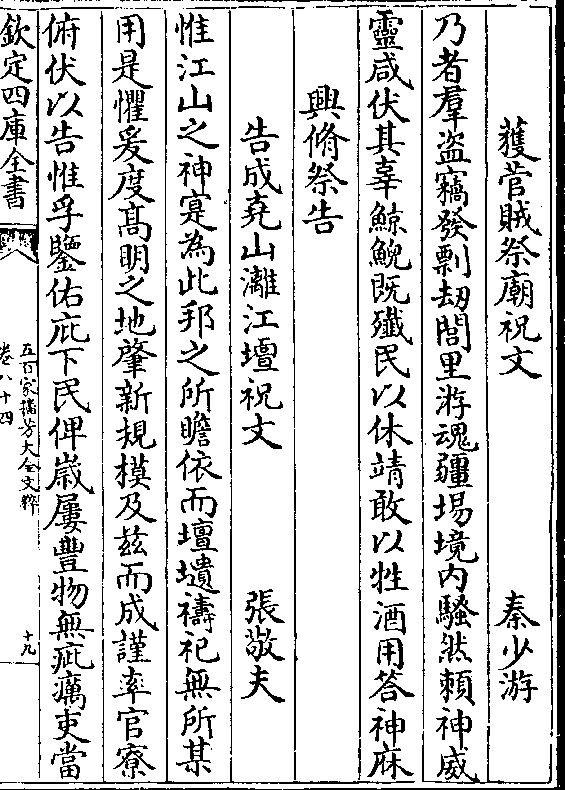 獲菅賊祭廟祝文 秦少游
乃者羣盜竊發剽刼閭里游魂疆埸境内騷然頼神威
靈咸伏其辜鯨鯢既殲民以休靖敢以牲酒用答神庥
興脩祭告
告成堯山灕江壇祝文 張敬夫
惟江山之神寔為此邦之所瞻依而壇壝禱祀無所某
用是懼爰度髙明之地肇新規模及兹而成謹率官寮
俯伏以告惟孚鑒佑庇下民俾嵗屢豐物無疵癘吏當
欽定四庫全書
五百家播芳大全文粹
卷八十四
十九